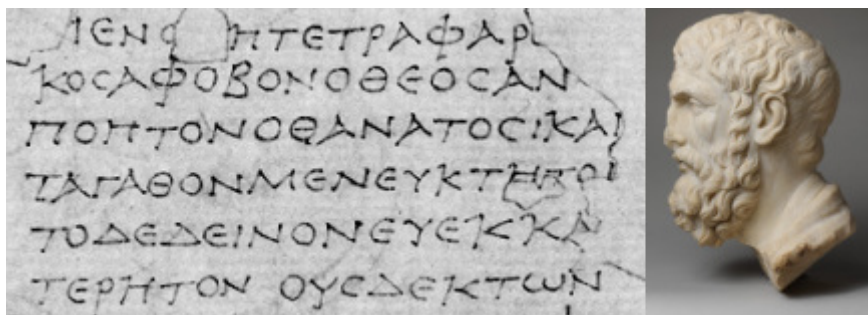 ΙΕΝΟ ΗΤΕΤΡΑΦΑΡ
ΚΟϹΑΦΟΒΟΝΟΘΕΟϹΑΝ
ΠΟΠΤΟΝΟΘΑΝΑΤΟϹΙΚΑΙ
ΤΑΓΑΘΟΝΜΕΝΕΥΚΤΗΤΟΙ
ΤΟΔΕΔΕΙΝΟΝΕΥΕΚΚΑ
ΤΕΡΗΤΟΝ ΟΥϹΔΕΚΤΩΝ